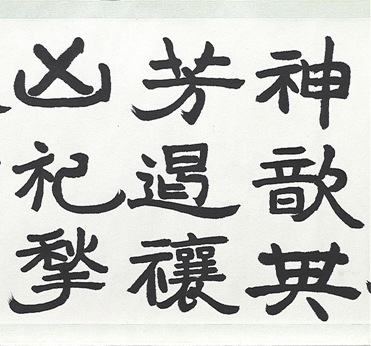 神歆其
芳遏禳
凶祀揫